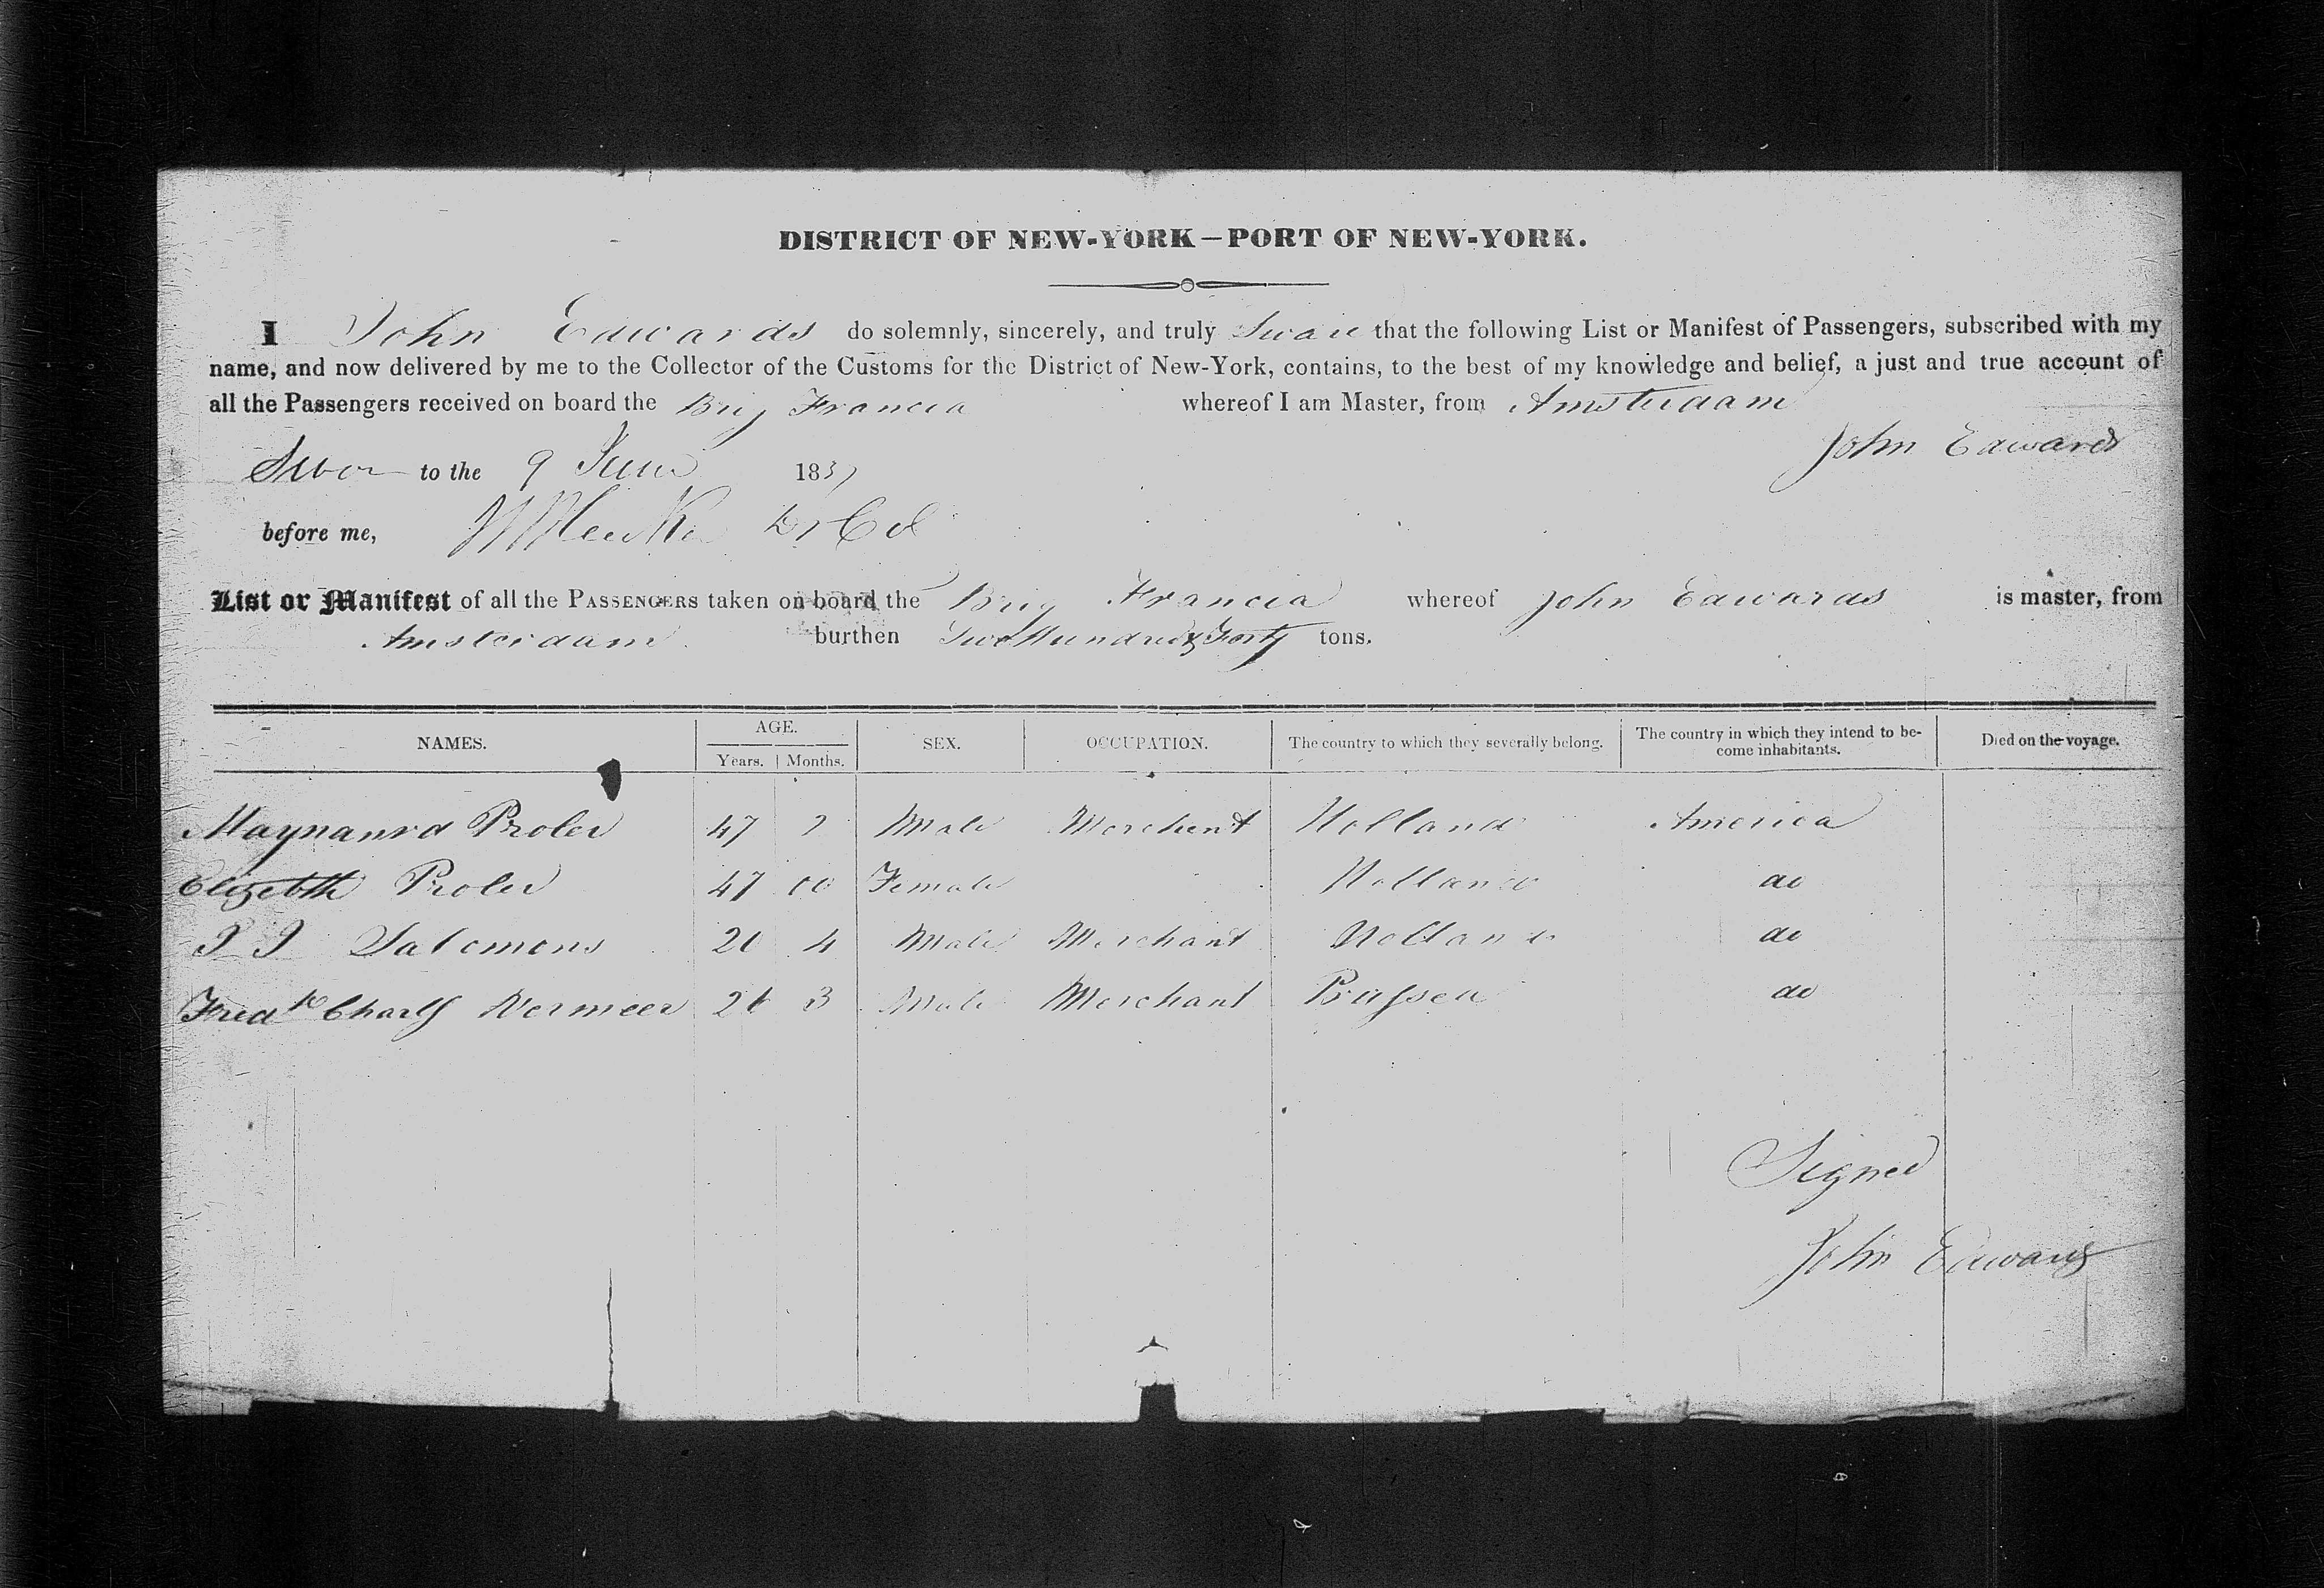 DISTRICT OF NEW-YORK—PORT OF NEW-YORK.
I John Edwards do solemnly, sincerely, and truly Sware that the following List or Manifest of Passengers, subscribed with my
name, and now delivered by me to the Collector of the Customs for the District of New-York, contains, to the best of my knowledge and belief, a just and true account of
all the Passengers received on board the Brig Francia whereof I am Master, from Amsterdam
John Edwards
Swor to the 9 June 183
before me,
List or Manifest of all the PASSENGERS taken on board the Brig Francia whereof John Edwards is master, from
Amsterdam burthen Two Hundred & Forty tons.
NAMES. AGE. SEX. OCCUPATION. The country to which they severally belong. The country in which they intend to be- Died on the voyage.
Years. Months. come inhabitants.
Maynanrd Proler 47 Male Merchent Holland America
Elizebth Proler 47 00 Female Holland do
I I Salomons 20 4 Male Merchant Holland do
Fredk Charls Vermeer 3 Male Merchant do
Signed
John Edwards